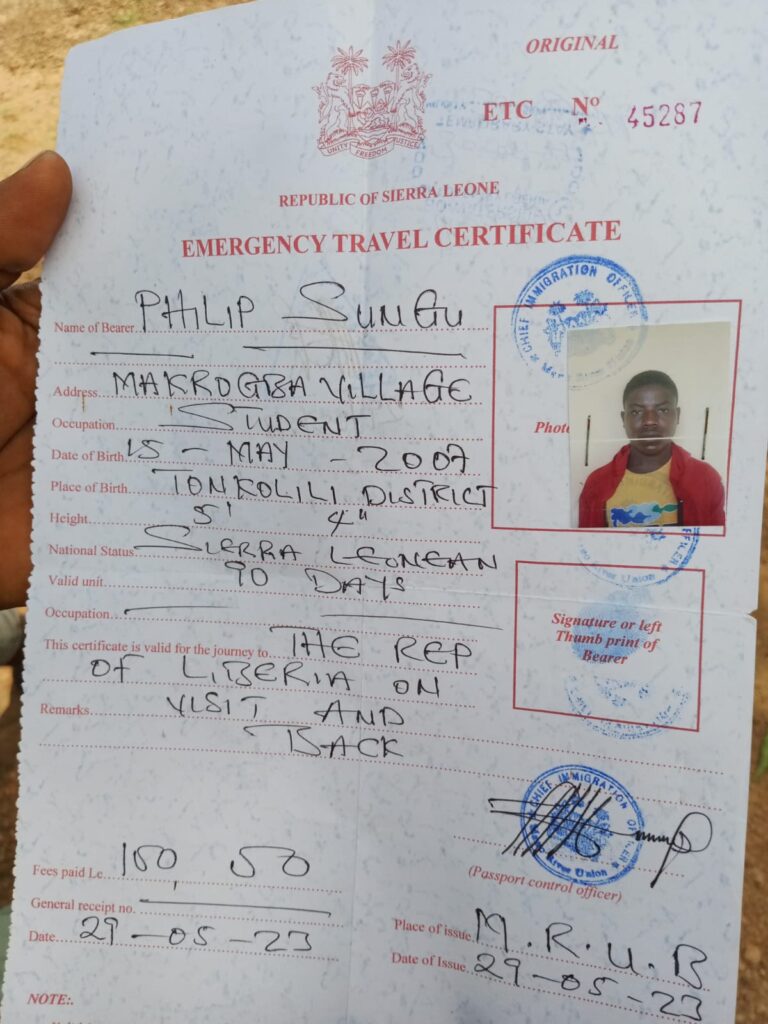 ORIGINAL
ETC Nº 45287
UNITY FREEDOM JUSTICE
REPUBLIC OF SIERRA LEONE
EMERGENCY TRAVEL CERTIFICATE
Name of Bearer PHILIP SUNGU
Address MAKROGBA VILLAGE
Occupation STUDENT
Date of Birth 15 - MAY - 2007
Place of Birth TONKOLILI DISTRICT
Height 5' 4"
National Status SIERRA LEONEAN
Valid unit 90 DAYS
Occupation
This certificate is valid for the journey to THE REP
OF LIBERIA ON
Remarks VISIT AND
BACK
CHIEF IMMIGRATION OFFICER
Photo
River Union
Signature or left
Thumb print of
Bearer
CHIEF IMMIGRATION OFFICER
River Union
(Passport control officer)
Fees paid Le 150, 50
General receipt no.
Date 29-05-23
Place of issue M.R.U.B
Date of Issue 29-05-23
NOTE:.